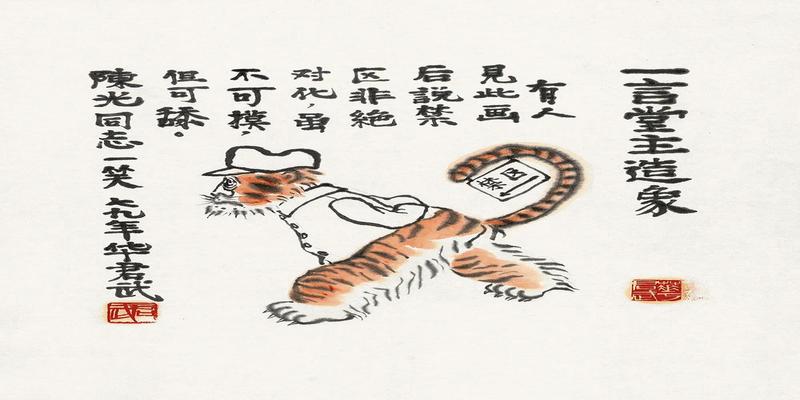 一言堂主造象
有人
見此画
后説禁
区非絶
对化，虽
不可摸，
但可舔。
陳光同志一笑 七九年华君武
禁区
君武